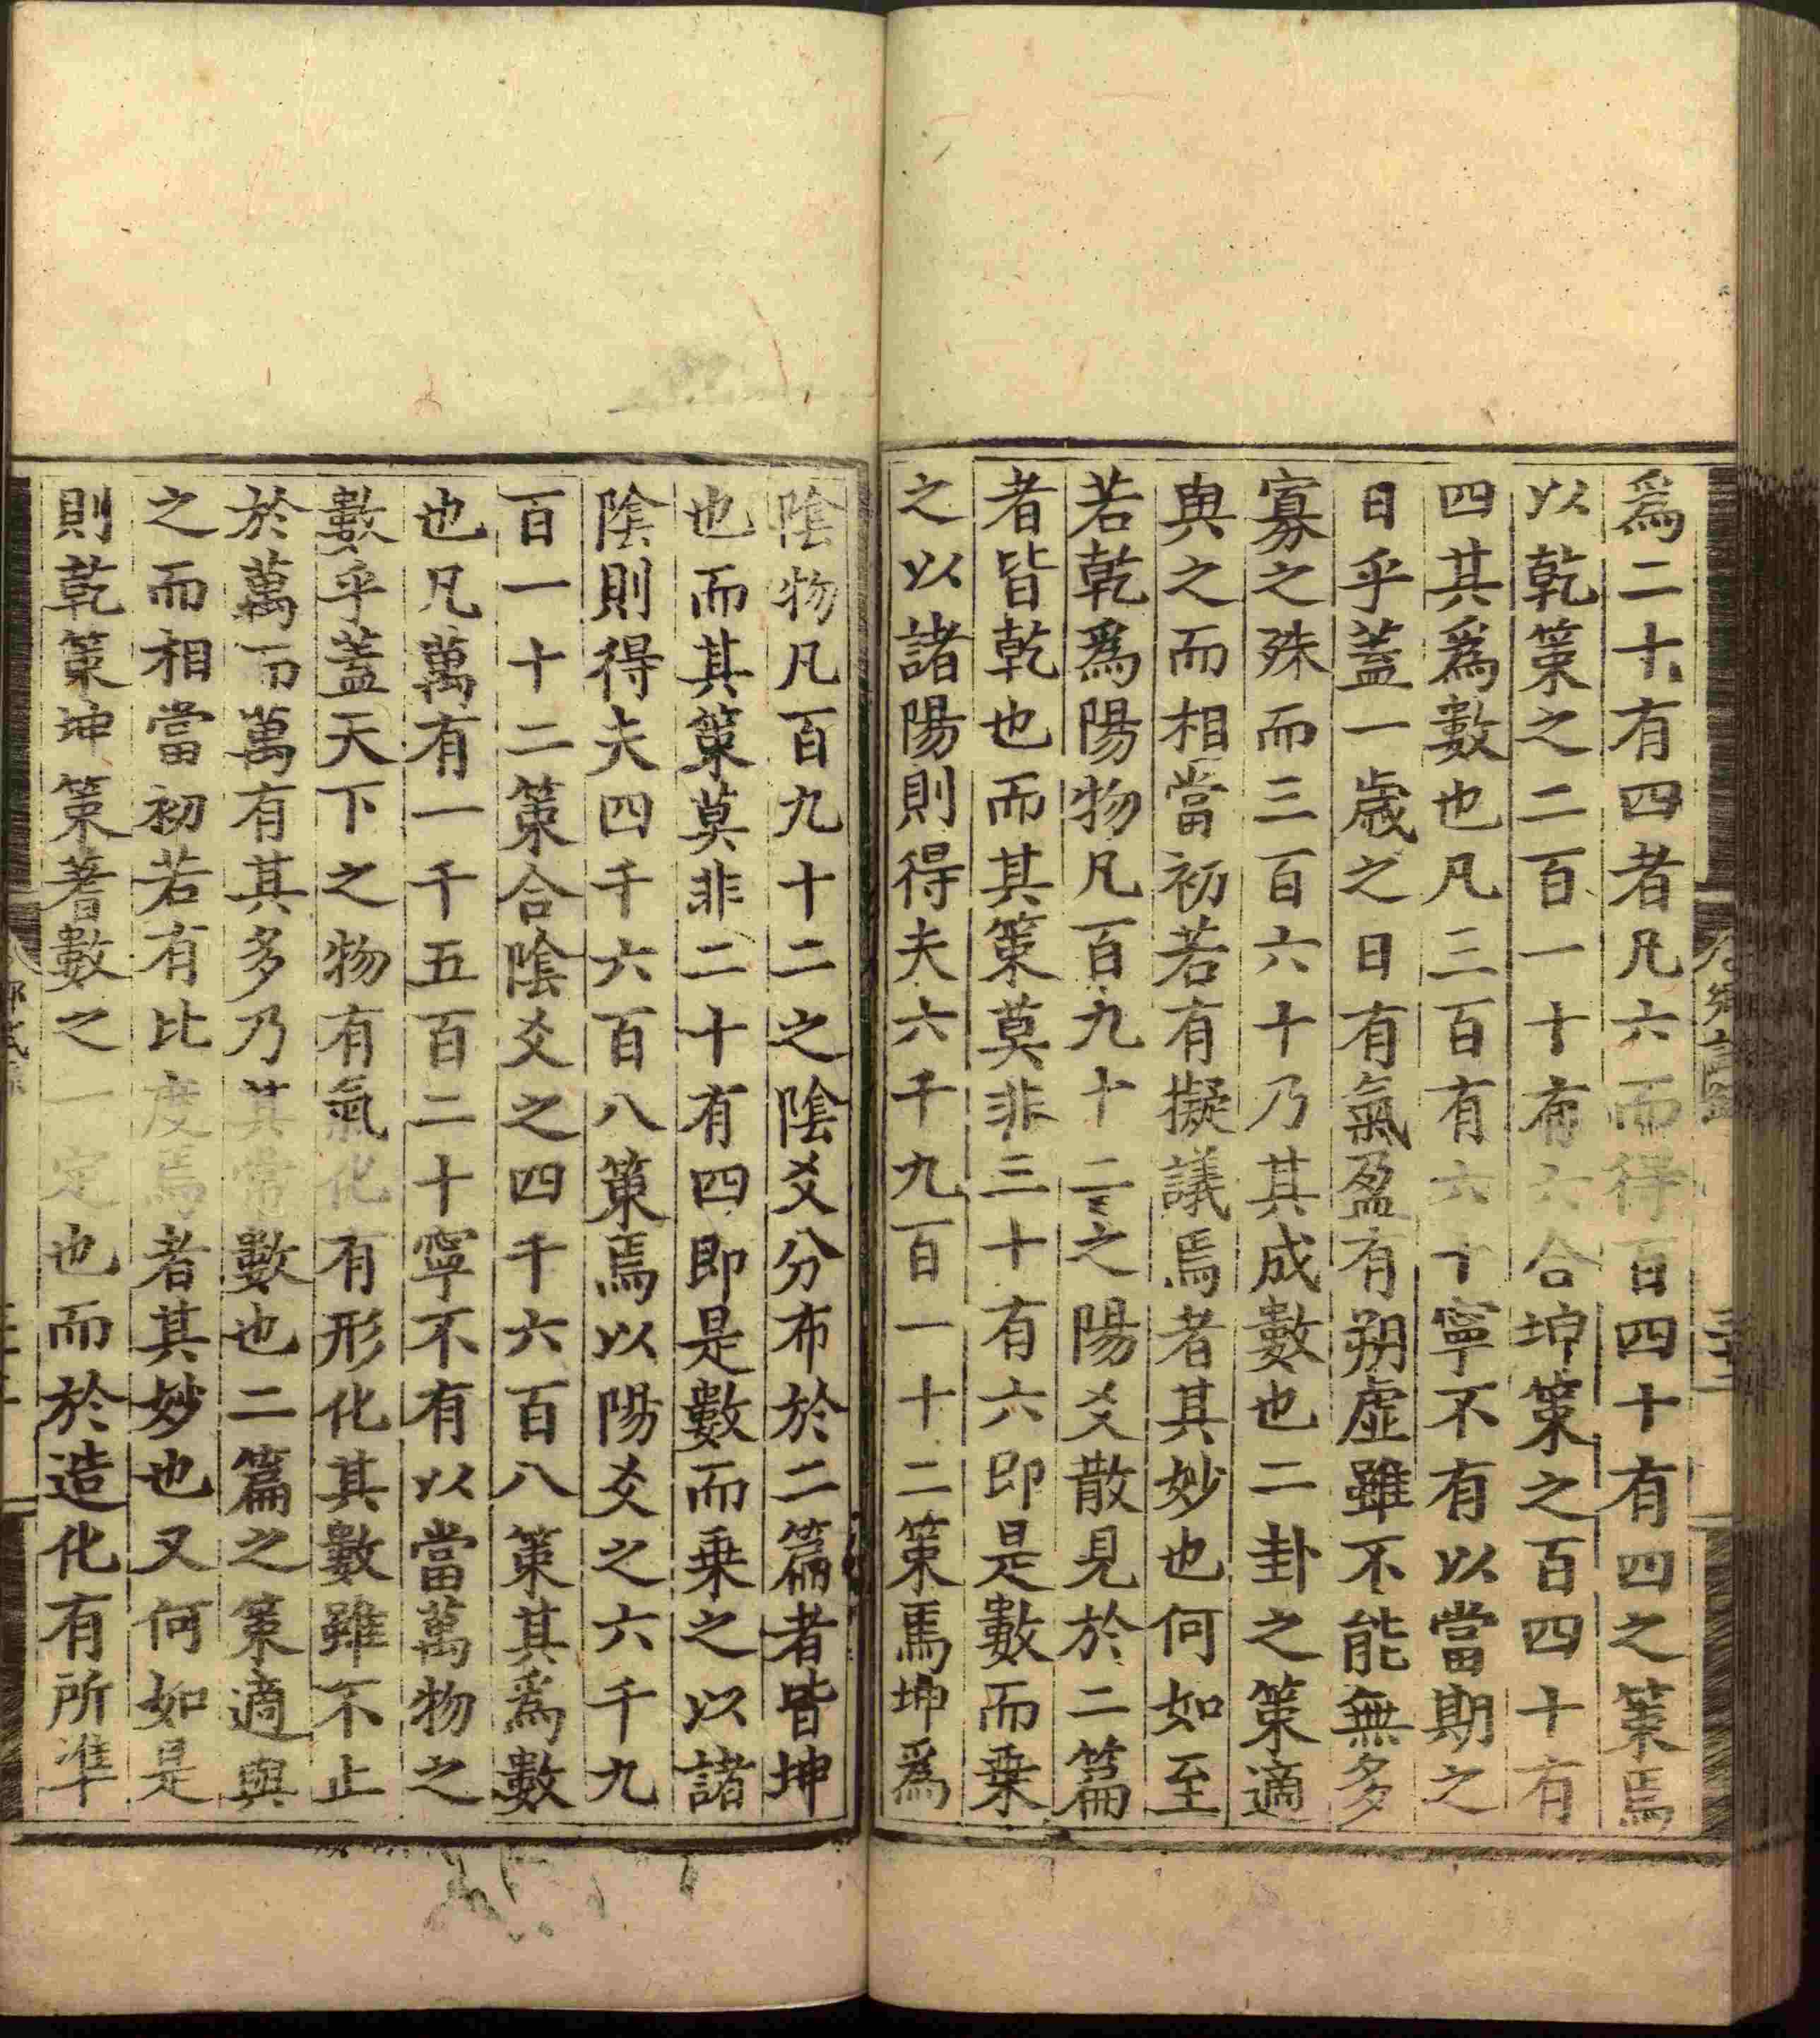 爲二十有四者凡六而得百四十有四之策焉
以乾策之二百一十有六合坤策之百四十有
四其爲數也凡三百有六十寧不有以當期之
日乎蓋一歲之日有氣盈有朔虛雖不能無多
寡之殊而三百六十乃其成數也二卦之策適
與之而相當初若有擬議焉者其妙也何如至
若乾爲陽物凡百九十二之陽爻散見於二篇
者皆乾也而其策莫非三十有六即是數而乗
之以諸陽則得夫六千九百一十二策焉坤爲
陰物凡百九十二之陰爻分布於二篇者皆坤
也而其策莫非二十有四即是數而乗之以諸
陰則得夫四千六百八策焉以陽爻之六千九
百一十二策合陰爻之四千六百八策其爲數
也凡萬有一千五百二十寧不有以當萬物之
數乎蓋天下之物有氣化有形化其數雖不止
於萬而萬有其多乃其常數也二篇之策適與
之而相當初若有比度焉者其妙也又何如是
則乾策坤策蓍數之一定也而於造化有所準